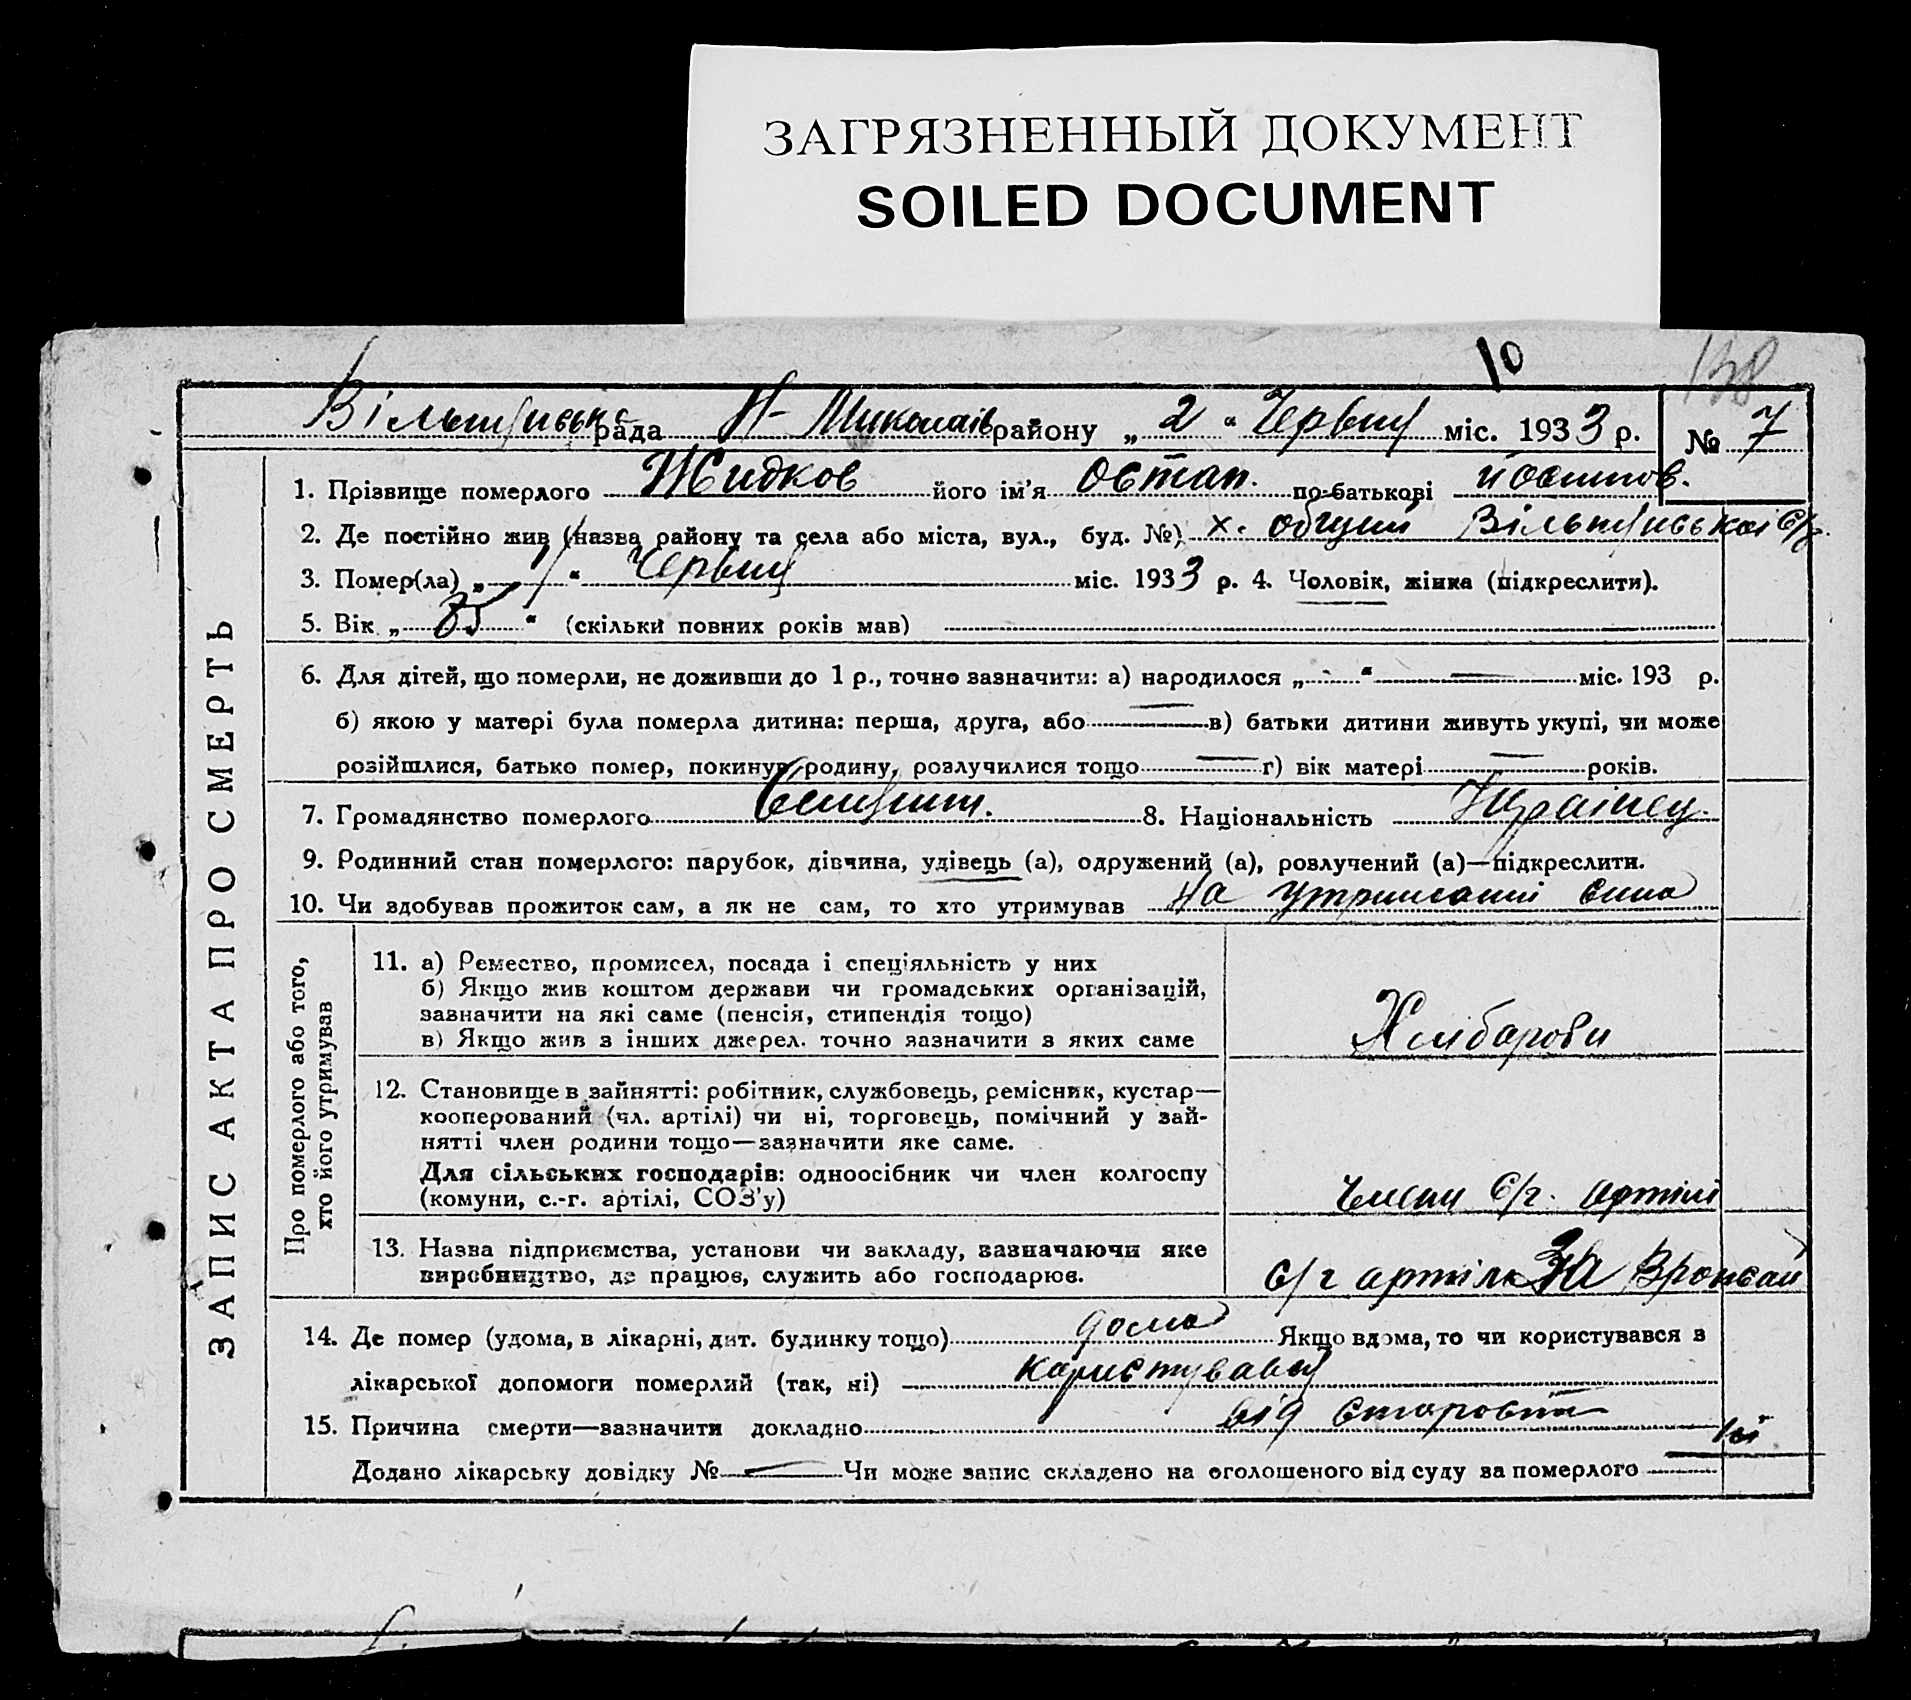 ЗАГРЯЗНЕННЫЙ ДОКУМЕНТ
SOILED DOCUMENT
10
138
рада Н-Миколаїв району „ 2 “ Червня міс. 1933 р. № 7
ЗАПИС АКТА ПРО СМЕРТЬ
1. Прізвище померлого Жидков його ім'я Остап по-батькові Йосипов.
2. Де постійно жив (назва району та села або міста, вул., буд. №) х. С/р.
3. Помер(ла) „ 1 “ Червня міс. 1933 р. 4. Чоловік, жінка (підкреслити).
5. Вік „ 85 “ (скільки повних років мав)
6. Для дітей, що померли, не доживши до 1 р., точно зазначити: а) народилося „ — “ — міс. 193 р.
б) якою у матері була померла дитина: перша, друга, або — в) батьки дитини живуть укупі, чи може
розійшлися, батько помер, покинув родину, розлучилися тощо — г) вік матері — років.
7. Громадянство померлого 8. Національність Українец
9. Родинний стан померлого: парубок, дівчина, удівець (а), одружений (а), розлучений (а)—підкреслити.
10. Чи здобував прожиток сам, а як не сам, то хто утримував На утриманні сина
Про померлого або того,
хто його утримував
11. а) Ремество, промисел, посада і спеціяльність у них
б) Якщо жив коштом держави чи громадських організацій,
зазначити на які саме (пенсія, стипендія тощо)
в) Якщо жив з інших джерел. точно зазначити з яких саме
Хліборобн
12. Становище в зайнятті: робітник, службовець, ремісник, кустар—
кооперований (чл. артілі) чи ні, торговець, помічний у зай-
нятті член родини тощо—зазначити яке саме.
Для сільських господарів: одноосібник чи член колгоспу
(комуни, с.-г. артілі, СОЗ'у)
член с/г. артілі
13. Назва підприємства, установи чи закладу, зазначаючи яке
виробництво, де працює, служить або господарює.
с/г артіль
14. Де помер (удома, в лікарні, дит. будинку тощо) дома Якщо вдома, то чи користувався з
лікарської допомоги померлий (так, ні) користувався
15. Причина смерти—зазначити докладно від старости
Додано лікарську довідку № — Чи може запис складено на оголошеного від суду за померлого ні